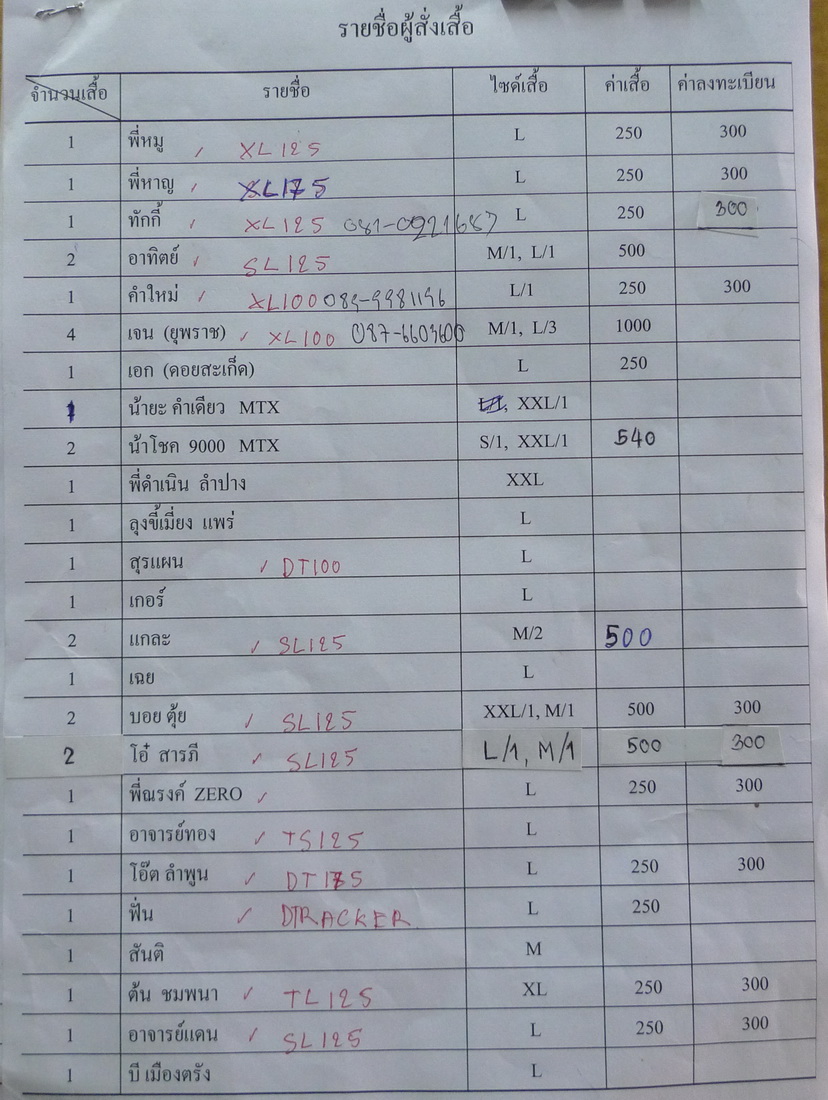 รายชื่อผู้สั่งเสื้อ
จำนวนเสื้อ รายชื่อ ไซด์เสื้อ ค่าเสื้อ ค่าลงทะเบียน
1 พี่หมู ✓ XL125 L 250 300
1 พี่หาญ ✓ XL175 L 250 300
1 ทักกี้ ✓ XL125 081-0921687 L 250 300
2 อาทิตย์ ✓ SL125 M/1, L/1 500
1 คำใหม่ ✓ XL100 089-9981196 L/1 250 300
4 เจน (ยุพราช) ✓ XL100 087-6603600 M/1, L/3 1000
1 เอก (ดอยสะเก็ด) L 250
1 น้ายะ คำเดียว MTX , XXL/1
2 น้าโชค 9000 MTX S/1, XXL/1 540
1 พี่ดำเนิน ลำปาง XXL
1 ลุงขี้เมี่ยง แพร่ L
1 สุรแผน ✓ DT100 L
1 เกอร์ L
2 แกละ ✓ SL125 M/2 500
1 เฉย L
2 บอย ตุ้ย ✓ SL125 XXL/1, M/1 500 300
2 โอ๋ สารภี ✓ SL125 L/1, M/1 500 300
1 พี่ณรงค์ ZERO ✓ L 250 300
1 อาจารย์ทอง ✓ TS125 L
1 โอ๊ต ลำพูน ✓ DT175 L 250 300
1 ฟั่น ✓ DTRACKER L 250
1 สันติ M
1 ต้น ชมพนา ✓ TL125 XL 250 300
1 อาจารย์แดน ✓ SL125 L 250 300
1 บี เมืองตรัง L